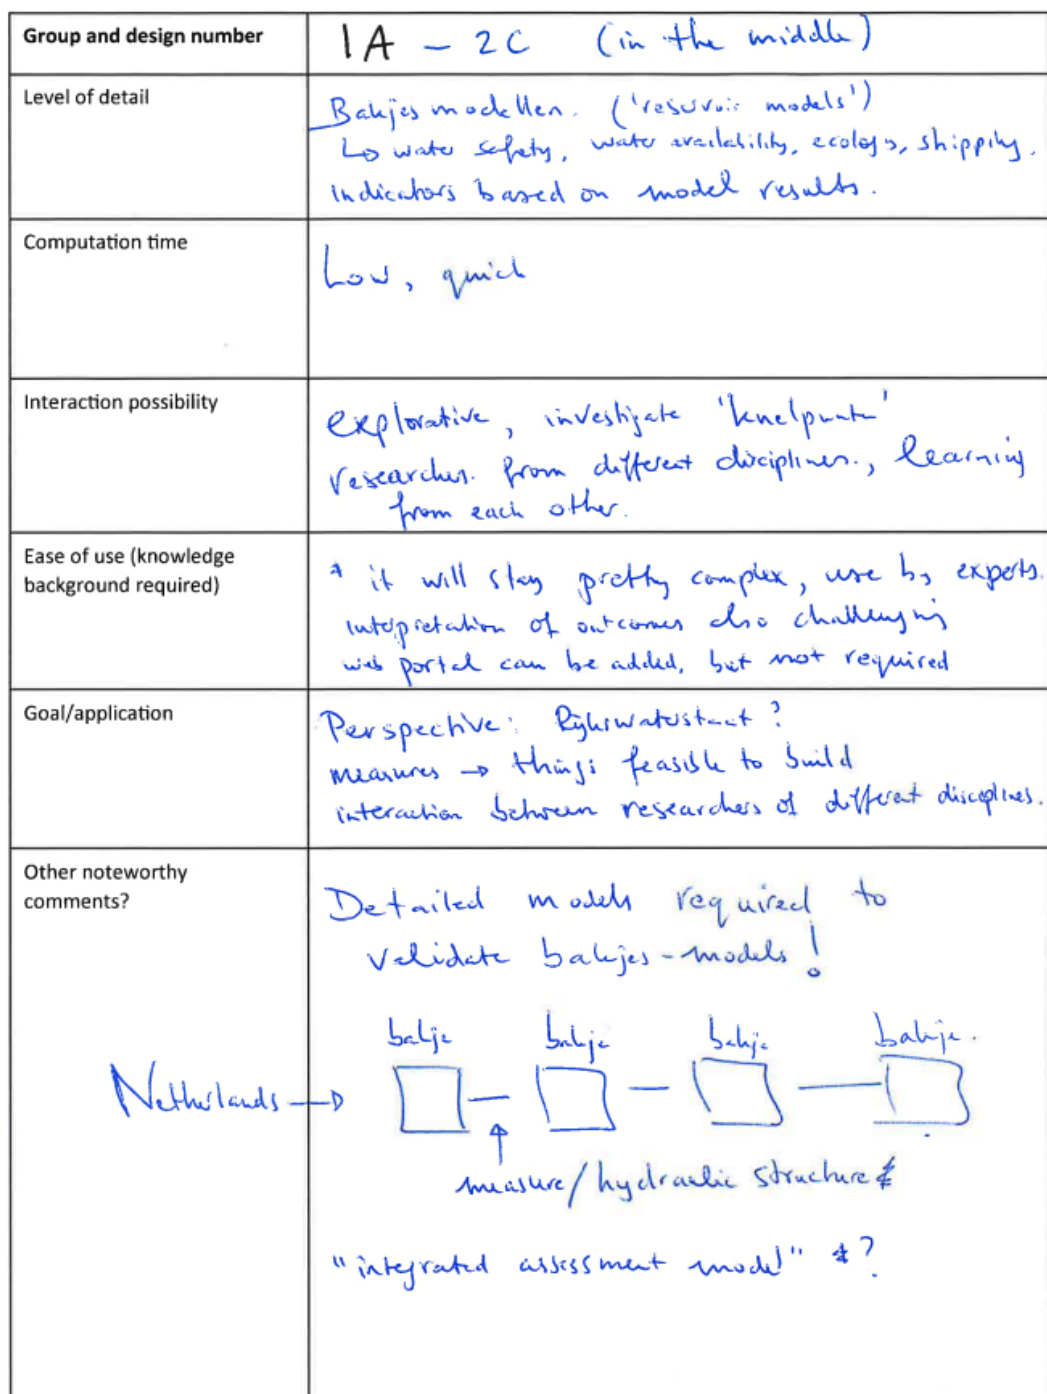 Group and design number
1A - 2C (in the middle)
Level of detail
Bakjes modellen. ('reservoir models')
↳ water safety, water availability, ecology, shipping.
indicators based on model results.
Computation time
Low, quick
Interaction possibility
explorative, investigate 'knelpunten'
researchers. from different disciplines., learning
from each other.
Ease of use (knowledge
background required)
* it will stay pretty complex, use by experts.
interpretation of outcomes also challenging
web portal can be added, but not required
Goal/application
Perspective: Rijkswaterstaat?
measures → things feasible to build
interaction between researchers of different disciplines.
Other noteworthy
comments?
Detailed models required to
validate bakjes-models!
bakje bakje bakje bakje.
Netherlands →
measure/hydraulic structure
"integrated assessment model" *?